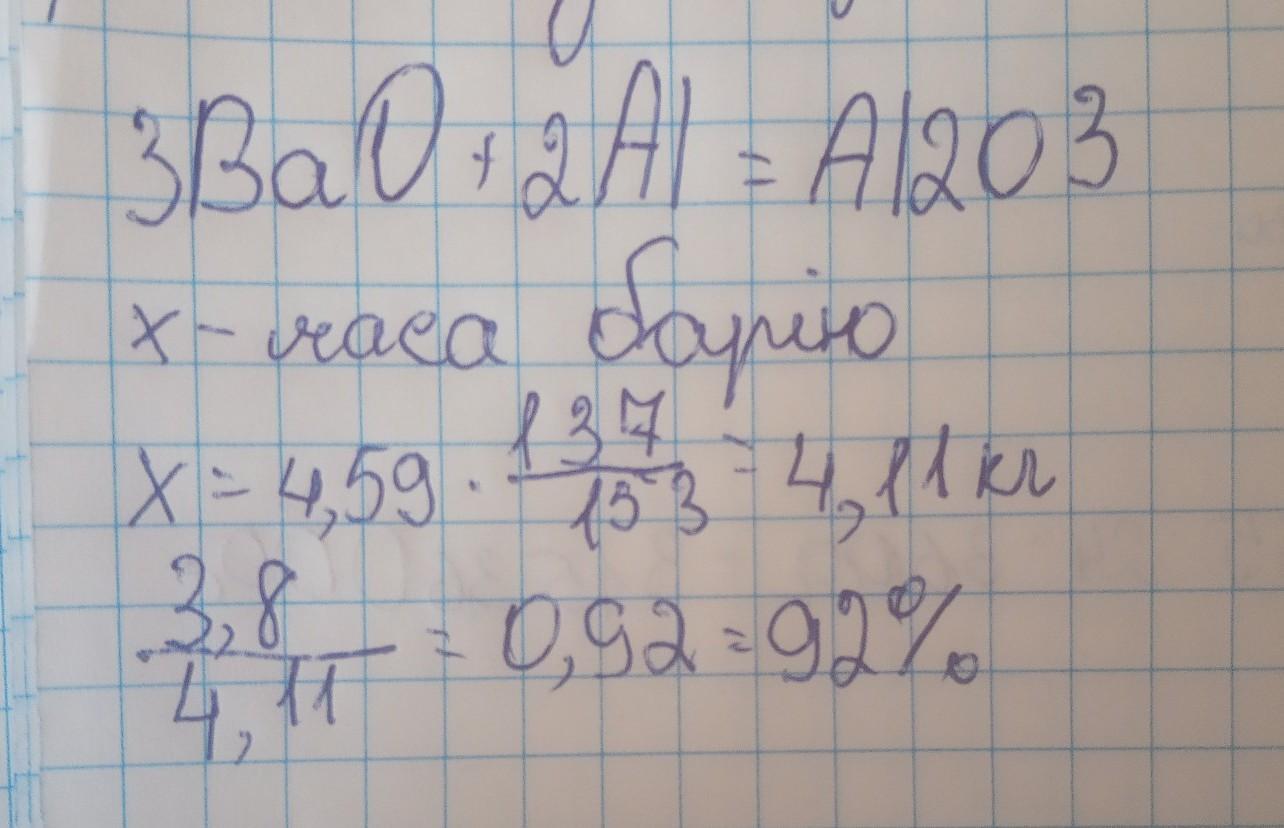 3BaO + 2Al = Al2O3
x - маса барію
x = 4,59 · 137/153 = 4,11 кг
3,8/4,11 = 0,92 = 92%